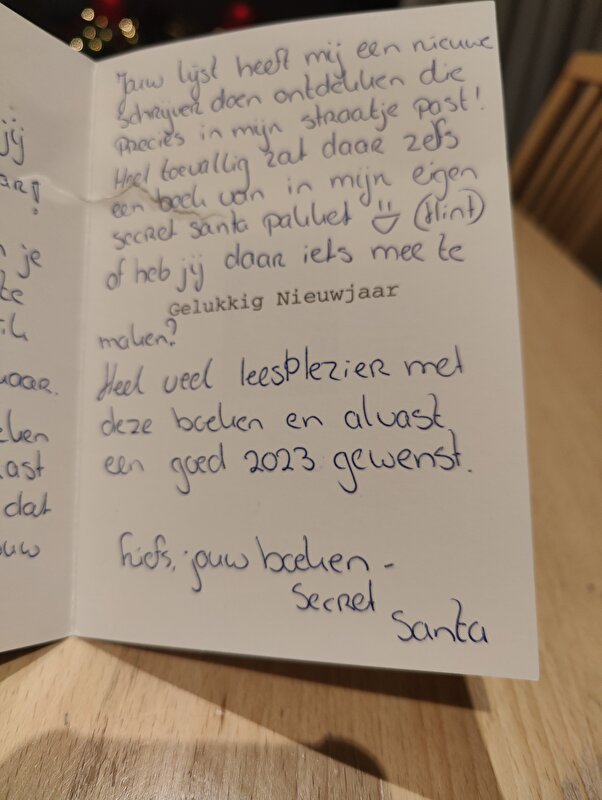 jij
je
te
dat
Jouw lijst heeft mij een nieuwe
schrijver doen ontdekken die
precies in mijn straatje past!
Heel toevallig zat daar zelfs
een boek van in mijn eigen
secret santa pakket (Hint)
of heb jij daar iets mee te
Gelukkig Nieuwjaar
maken?
Heel veel leesplezier met
deze boeken en alvast
een goed 2023 gewenst.
Liefs, jouw boeken -
Secret
Santa